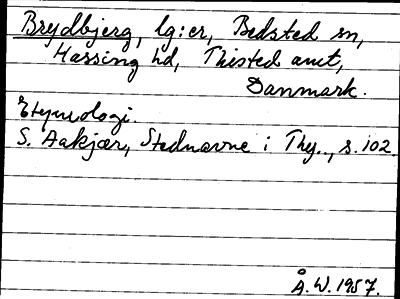 Brydbjerg, lg:er, Bedsted sn,
Hassing hd, Thisted amt,
Danmark.
Etymologi.
S. Aakjær, Stednavne i Thy.., s. 102.
Å. W. 1957.